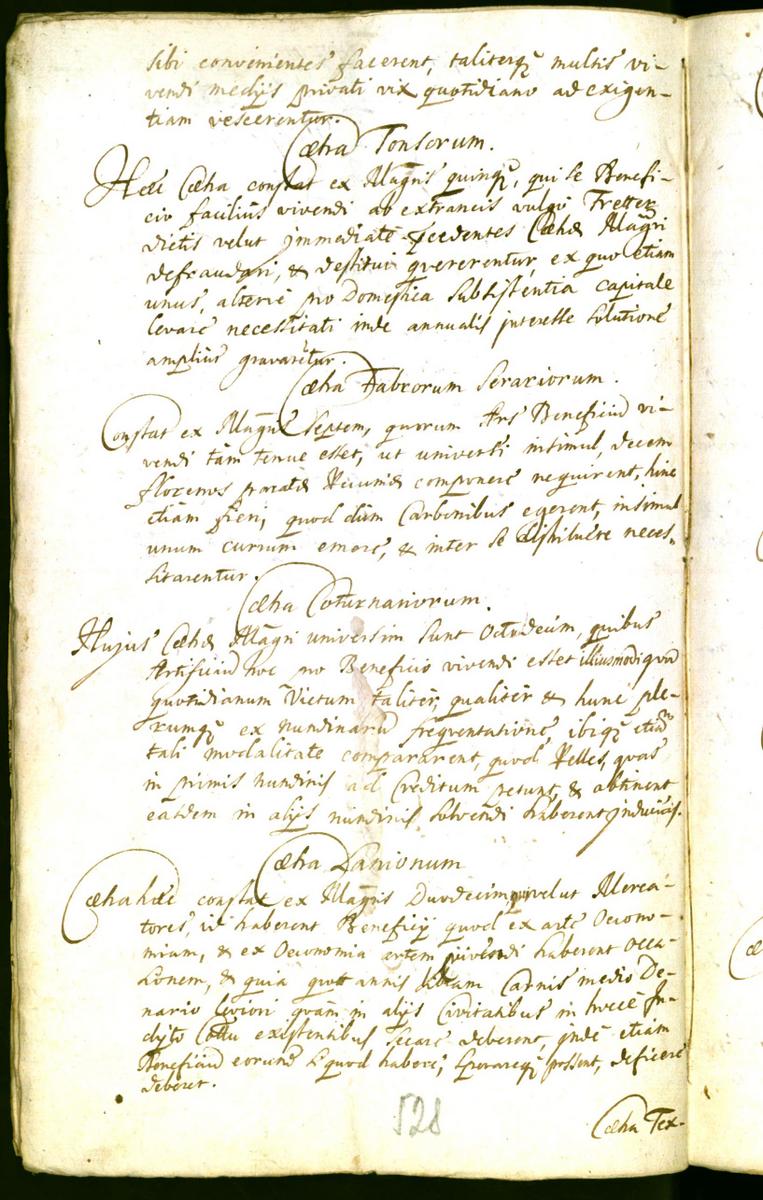 sibi convenientes facerent, taliterq; multis vi-
vendi medijs privati vix quotidiano ad exigen-
tiam vescerentur.
Cæha Tonsorum.
Hæc Cæha constat ex Magris quinq;, qui se Benefi-
cio facilius vivendi ab extraneis vulgo Fretter
dictis velut immediate pcedentes Cæhæ Magri
defraudari, & destitui qvererentur, ex quo etiam
unus, alterve pro Domestica Subsistentia capitale
levare necessitati inde annualis interesse solutione
amplius gravaretur.
Cæha Fabrorum Serariorum.
Constat ex Magris Septem, quorum Ars Beneficiū vi-
vendi tam tenue esset, ut universi insimul, decem
florenos paratæ Pecuniæ componere nequirent, hinc
etiam fieri, quod dum Carbonibus egerent, insimul
unum currum emere, & inter se distribuere neces-
sitarentur.
Cæha Coturnariorum.
Hujus Cæhæ Magri universim sunt Octodecim, quibus
Artificiū hoc pro Beneficio vivendi esset illiusmodi quod
quotidianum Victum taliter, qualiter & hunc ple-
rumq; ex nundinarū freqventatione, ibiq; etiam
tali modalitate compararent, quod Pelles, quas
in primis nundinis ad Creditum petunt, & obtinent
easdem in alijs nundinis solvendi haberent inducias.
Cæha Lanionum
Cæha hæc constat ex Magris Duodecim, qui velut Merca-
tores, id haberent Beneficij quod ex arte Oecono-
miam, & ex Oeconomia artem vivendi haberent occa-
sionem, & quia quot annis libram Carnis medio De-
nario leviori quam in alijs Civitatibus in hocce In-
clyto Cottu existentibus secare deberent, inde etiam
Beneficiū eorum si quod habere, sperareq; possent, deficere
deberet.
528
Cæha Tex-